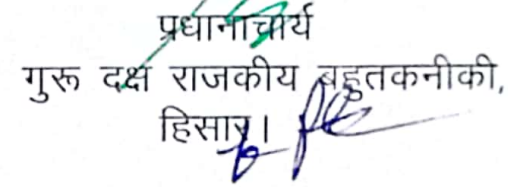 प्रधानाचार्य
गुरू दक्ष राजकीय बहुतकनीकी,
हिसार।